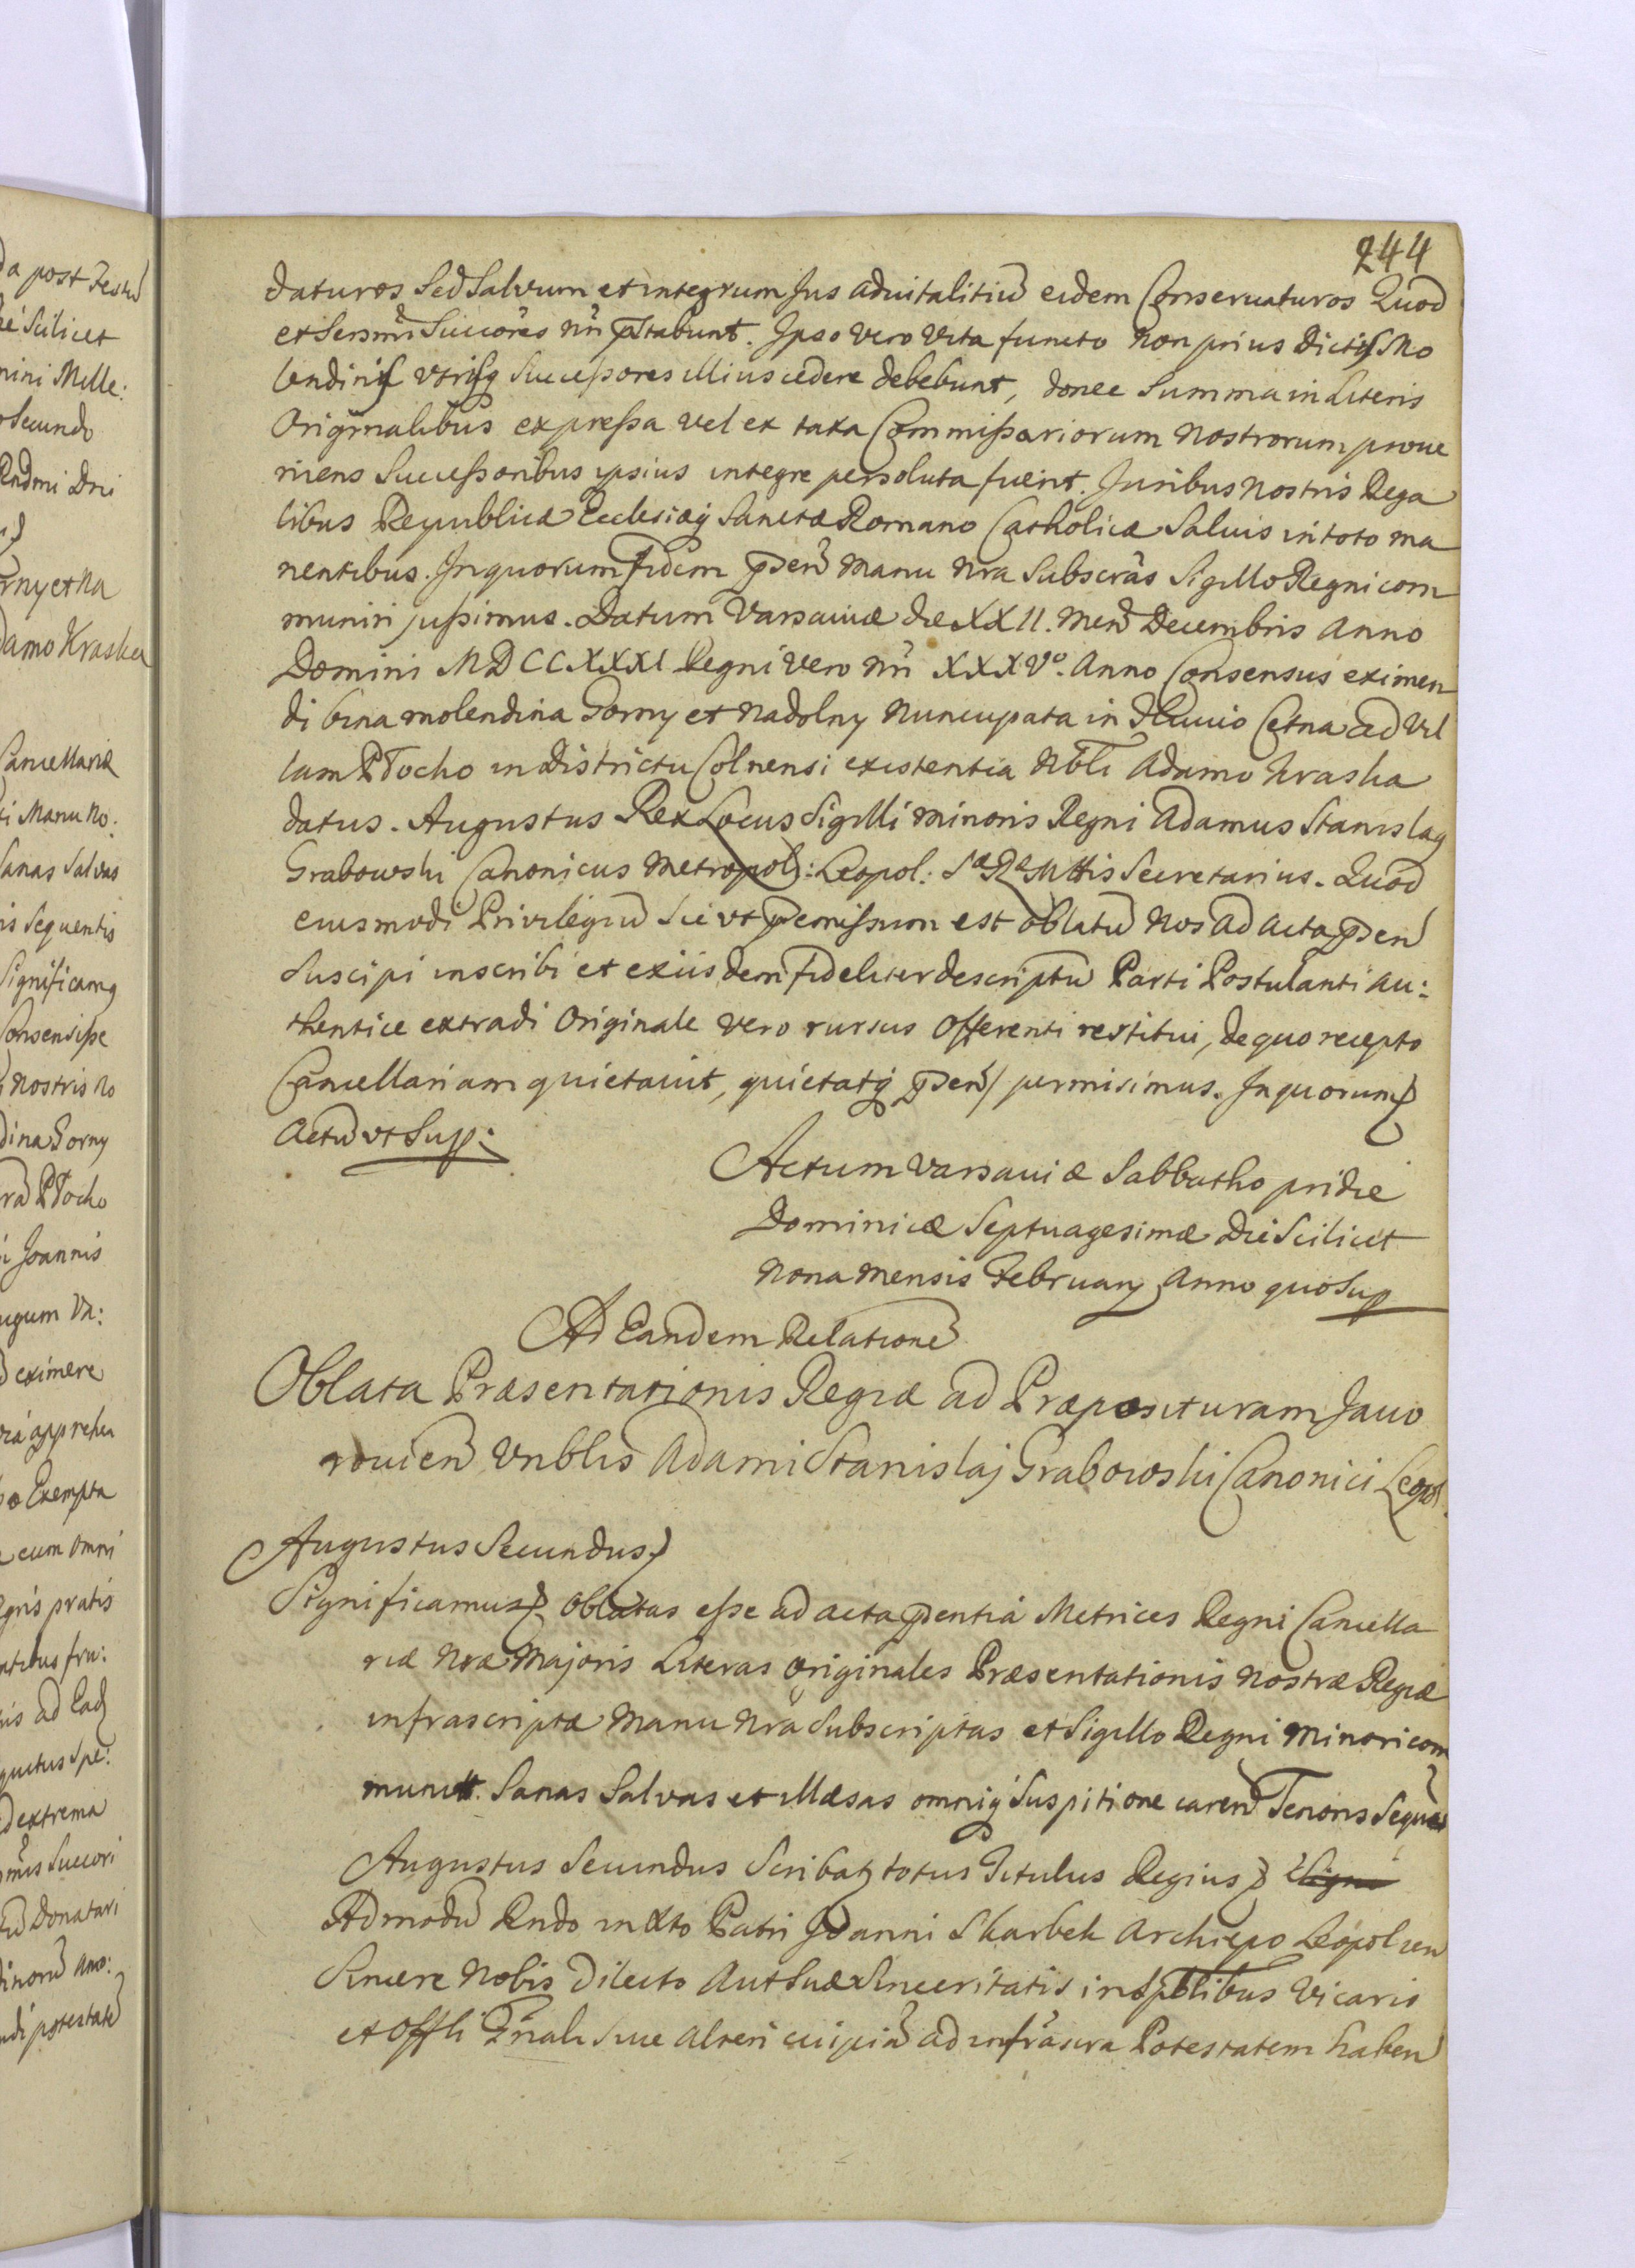 244
daturos Sed Salvum et integrum Jus advitalitiu eidem Conservaturos Quod
et Sersmi Succores nri pstabunt. Ipso vero vita functo non prius dictis Mo
lendinis utrisq Successores illius cedere debebunt, donec Summa in Literis
Originalibus expressa vel ex taxa Commissariorum nostrorum prove
niens Successoribus ipsius integre persoluta fuerit. Juribus nostris Rega
libus Republicæ Ecclesiæq Sanctæ Romano Catholicæ Salvis in toto ma
nentibus. In quorum fidem psen manu nra Subscras Sigillo Regni com
muniri jussimus. Datum Varsaviæ die XXII. men Decembris Anno
Domini MDCCXXXI Regni vero nri XXXVo. Anno Consensus eximen
di bina molendina Gorny et Nadolny nuncupata in Fluvio Cetna ad Vil
lam Ptocho in Districtu Colnensi existentia Nbli Adamo Kraska
datus. Augustus Rex Locus Sigilli minoris Regni Adamus Stanislaq
Grabowski Canonicus Metropol: Leopol: Sæ Ræ Mttis Secretarius. Quod
eiusmodi Privilegiu Sic ut pmissum est oblatu nos ad acta psen
Suscipi inscribi et ex iisdem fideliter descriptu Parti Postulanti au:
thentice extradi Originale vero rursus Offerenti restitui, de quo recepto
Cancellariam quietavit, quietatq psen permisimus. In quorum
Actu ut Sup:
Actum Varsaviæ Sabbatho pridie
Dominicæ Septuagesimæ Die Scilicet
Nona mensis February Anno quo Sup
Ad Eandem Relatione
Oblata Præsentationis Regiæ ad Præposituram Javo
rovien Vnblis Adami Stanislaj Grabowski Canonici Leopol.
Augustus Secundus
Significamus Oblatas esse ad acta psentia Metrices Regni Cancella
riæ Nræ Majoris Literas originales Præsentationis nostræ Regiæ
infrascriptæ Manu Nra Subscriptas et Sigillo Regni Minori com
munitt. Sanas Salvas et illæsas omniq Suspitione caren Tenoris Sequen
Augustus Secundus Scribatq totus Titulus Regius
Admodu Rndo in Xto Patri Joanni Skarbek Archiepo Leopolien
Sincere Nobis Dilecto Aut Suæ Sinceritatis in Spblibus Vicario
et Offli Gnali Sive alteri cuipia ad infrascra Potestatem haben